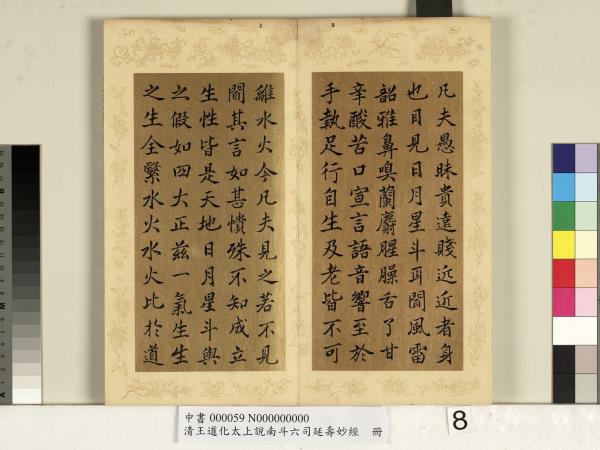 凡夫愚昧貴遠賤近近者身
也目見日月星斗耳聞風雷
韶雅鼻嗅蘭麝腥臊舌了甘
辛酸苦口宣言語音響至於
手執足行自生及老皆不可
離水火今凡夫見之若不見
聞其言如甚憒殊不知成立
生性皆是天地日月星斗與
之假如四大正茲一氣生生
之生全繫水火水火比於道
中書 000059 N000000000
清王道化太上說南斗六司延壽妙經 冊
8